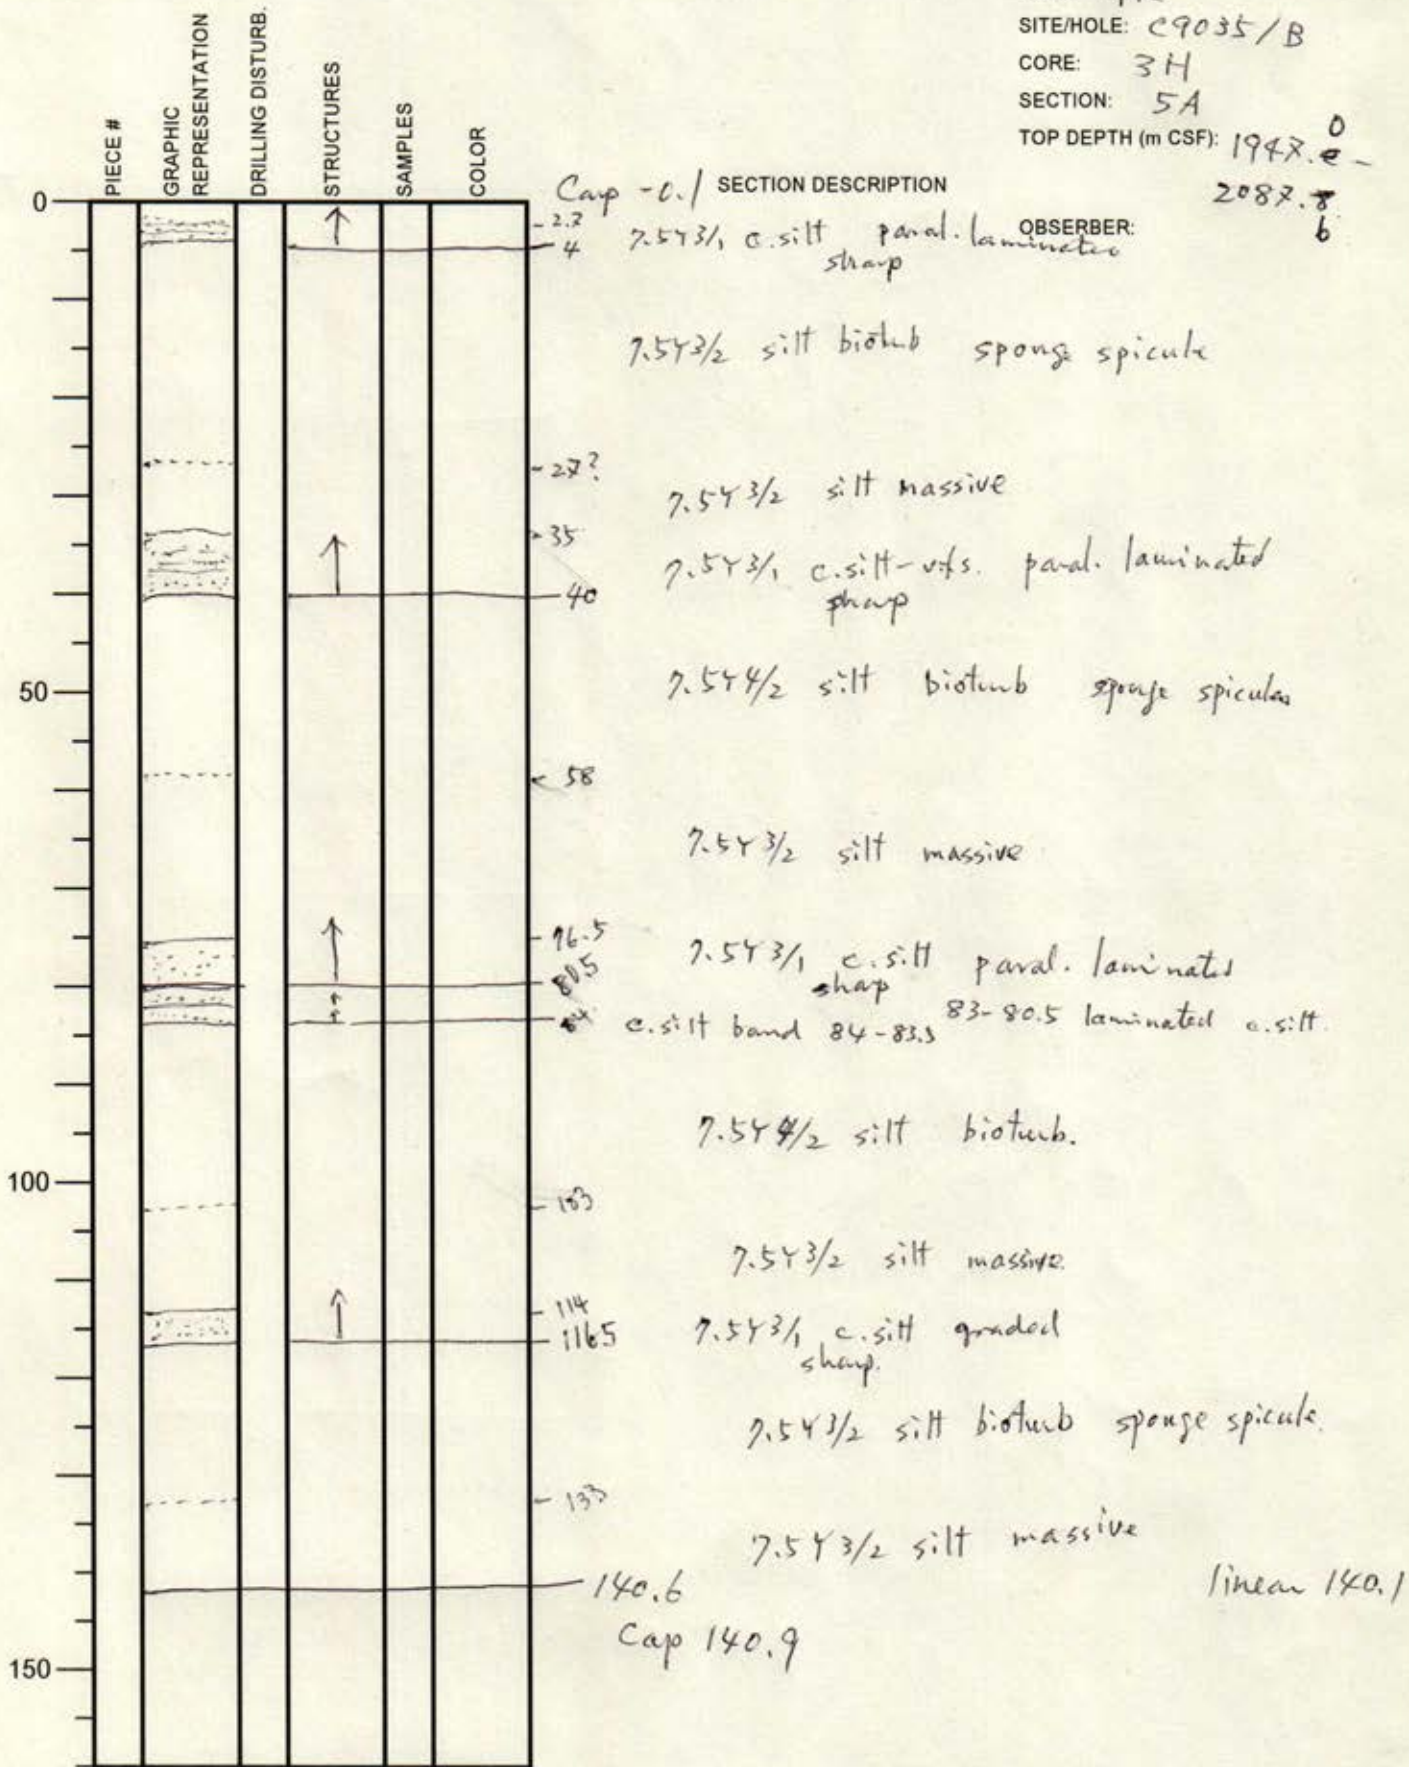 SITE/HOLE: C9035/B
CORE: 3H
SECTION: 5A
TOP DEPTH (m CSF): 1947.0 -
2087.6
OBSERBER:
PIECE #
GRAPHIC REPRESENTATION
DRILLING DISTURB.
STRUCTURES
SAMPLES
COLOR
Cap -0.1 SECTION DESCRIPTION
0
4 7.5Y3/1 c.silt paral. laminated
sharp
7.5Y3/2 silt bioturb sponge spicule
27?
7.5Y3/2 silt massive
35
7.5Y3/1 c.silt-v.f.s. paral. laminated
sharp
40
50
7.5Y4/2 silt bioturb sponge spicules
58
7.5Y3/2 silt massive
76.5
7.5Y3/1 c.silt paral. laminated
80.5 sharp
84 c.silt band 84-83.5 83-80.5 laminated c.silt
7.5Y4/2 silt bioturb.
100
103
7.5Y3/2 silt massive
114
116.5 7.5Y3/1 c.silt graded
sharp.
7.5Y3/2 silt bioturb sponge spicule.
133
7.5Y3/2 silt massive
140.6 linear 140.1
Cap 140.9
150